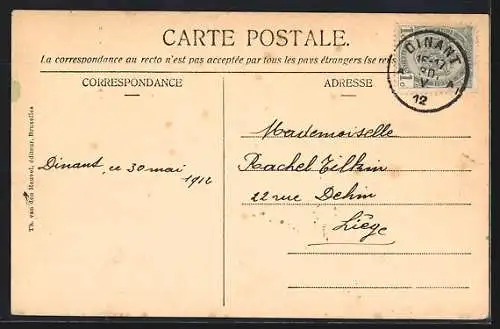 CARTE POSTALE.
La correspondance au recto n'est pas acceptée par tous les pays étrangers (se rens
CORRESPONDANCE
ADRESSE
DINANT
15-17
30
V
12
Th. van den Heuvel, éditeur, Bruxelles
Dinant, ce 30 mai
1912
Mademoiselle
Rachel Tilkin
22 rue Dehin
Liège